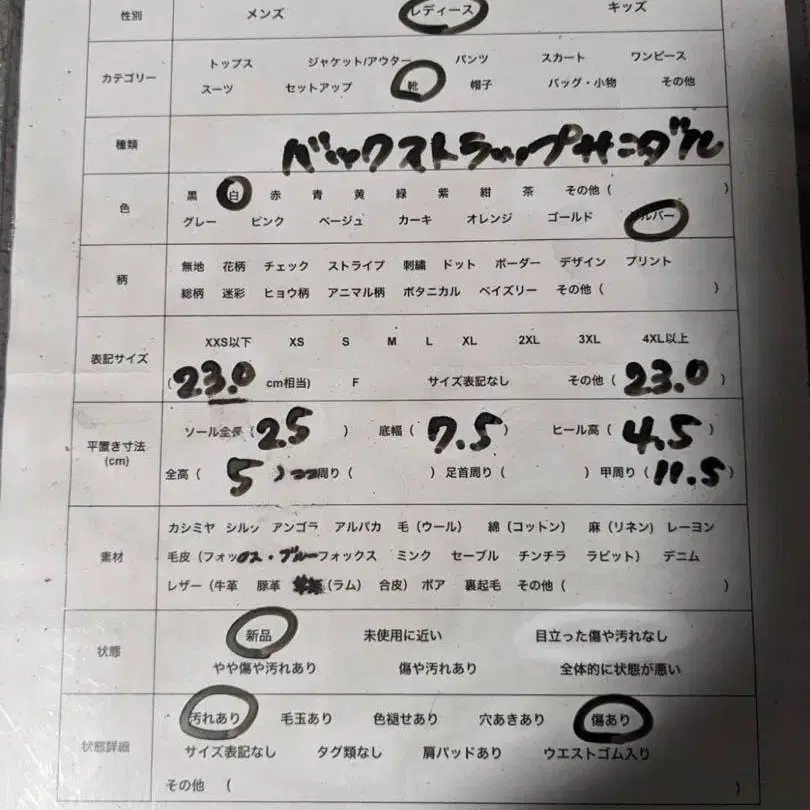 性別 メンズ レディース キッズ
カテゴリー トップス ジャケット/アウター パンツ スカート ワンピース
スーツ セットアップ 靴 帽子 バッグ・小物 その他
種類 バックストラップサンダル
色 黒 白 赤 青 黄 緑 紫 紺 茶 その他 ( )
グレー ピンク ベージュ カーキ オレンジ ゴールド ルバー
柄 無地 花柄 チェック ストライプ 刺繍 ドット ボーダー デザイン プリント
総柄 迷彩 ヒョウ柄 アニマル柄 ボタニカル ペイズリー その他 ( )
表記サイズ XXS以下 XS S M L XL 2XL 3XL 4XL以上
(23.0 cm相当) F サイズ表記なし その他 (23.0)
平置き寸法 (cm) ソール全長 (25) 底幅 (7.5) ヒール高 (4.5)
全高 (5) 周り ( ) 足首周り ( ) 甲周り (11.5)
素材 カシミヤ シルク アンゴラ アルパカ 毛 (ウール) 綿 (コットン) 麻 (リネン) レーヨン
毛皮 (フォックス・ブルーフォックス ミンク セーブル チンチラ ラビット) デニム
レザー (牛革 豚革 (ラム) 合皮) ボア 裏起毛 その他 ( )
状態 新品 未使用に近い 目立った傷や汚れなし
やや傷や汚れあり 傷や汚れあり 全体的に状態が悪い
状態詳細 汚れあり 毛玉あり 色褪せあり 穴あきあり 傷あり
サイズ表記なし タグ類なし 肩パッドあり ウエストゴム入り
その他 (